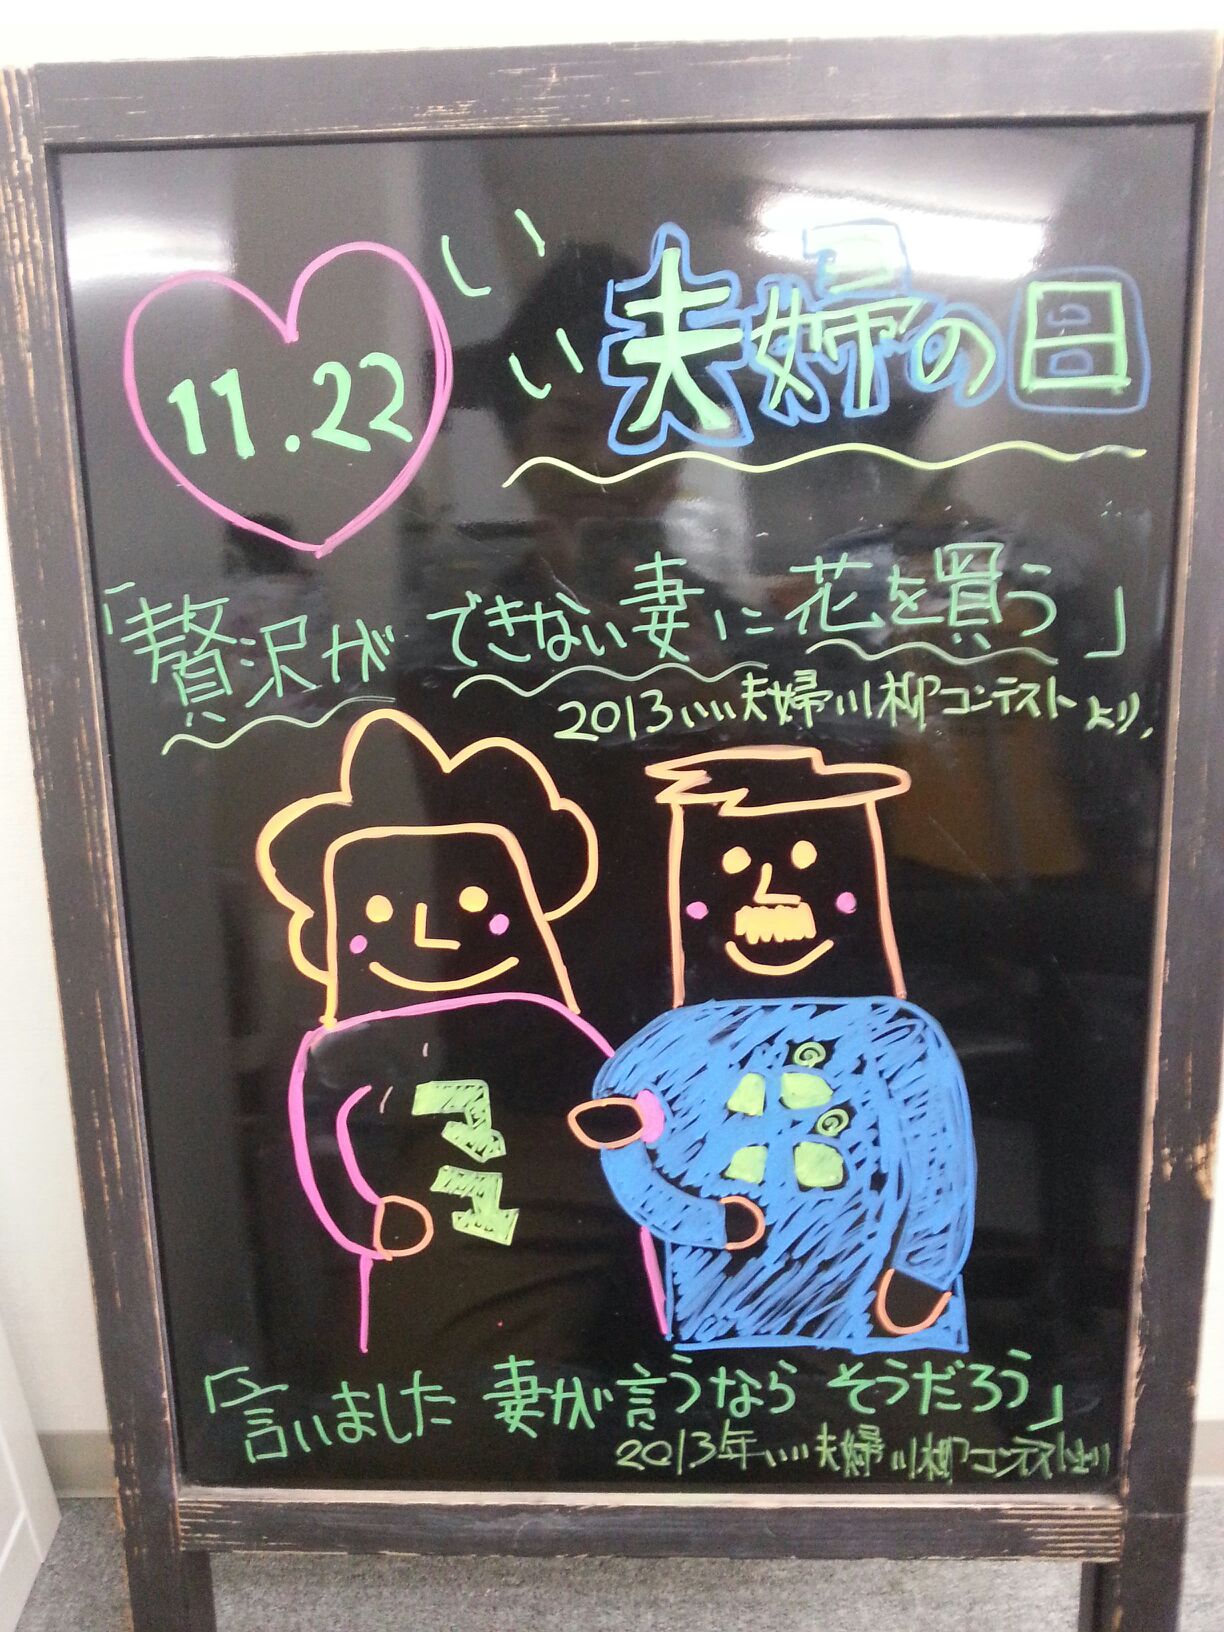 11.22
いい夫婦の日
「贅沢ができない妻に花を買う」
2013いい夫婦川柳コンテストより.
「言いました 妻が言うなら そうだろう」
2013年いい夫婦川柳コンテストより